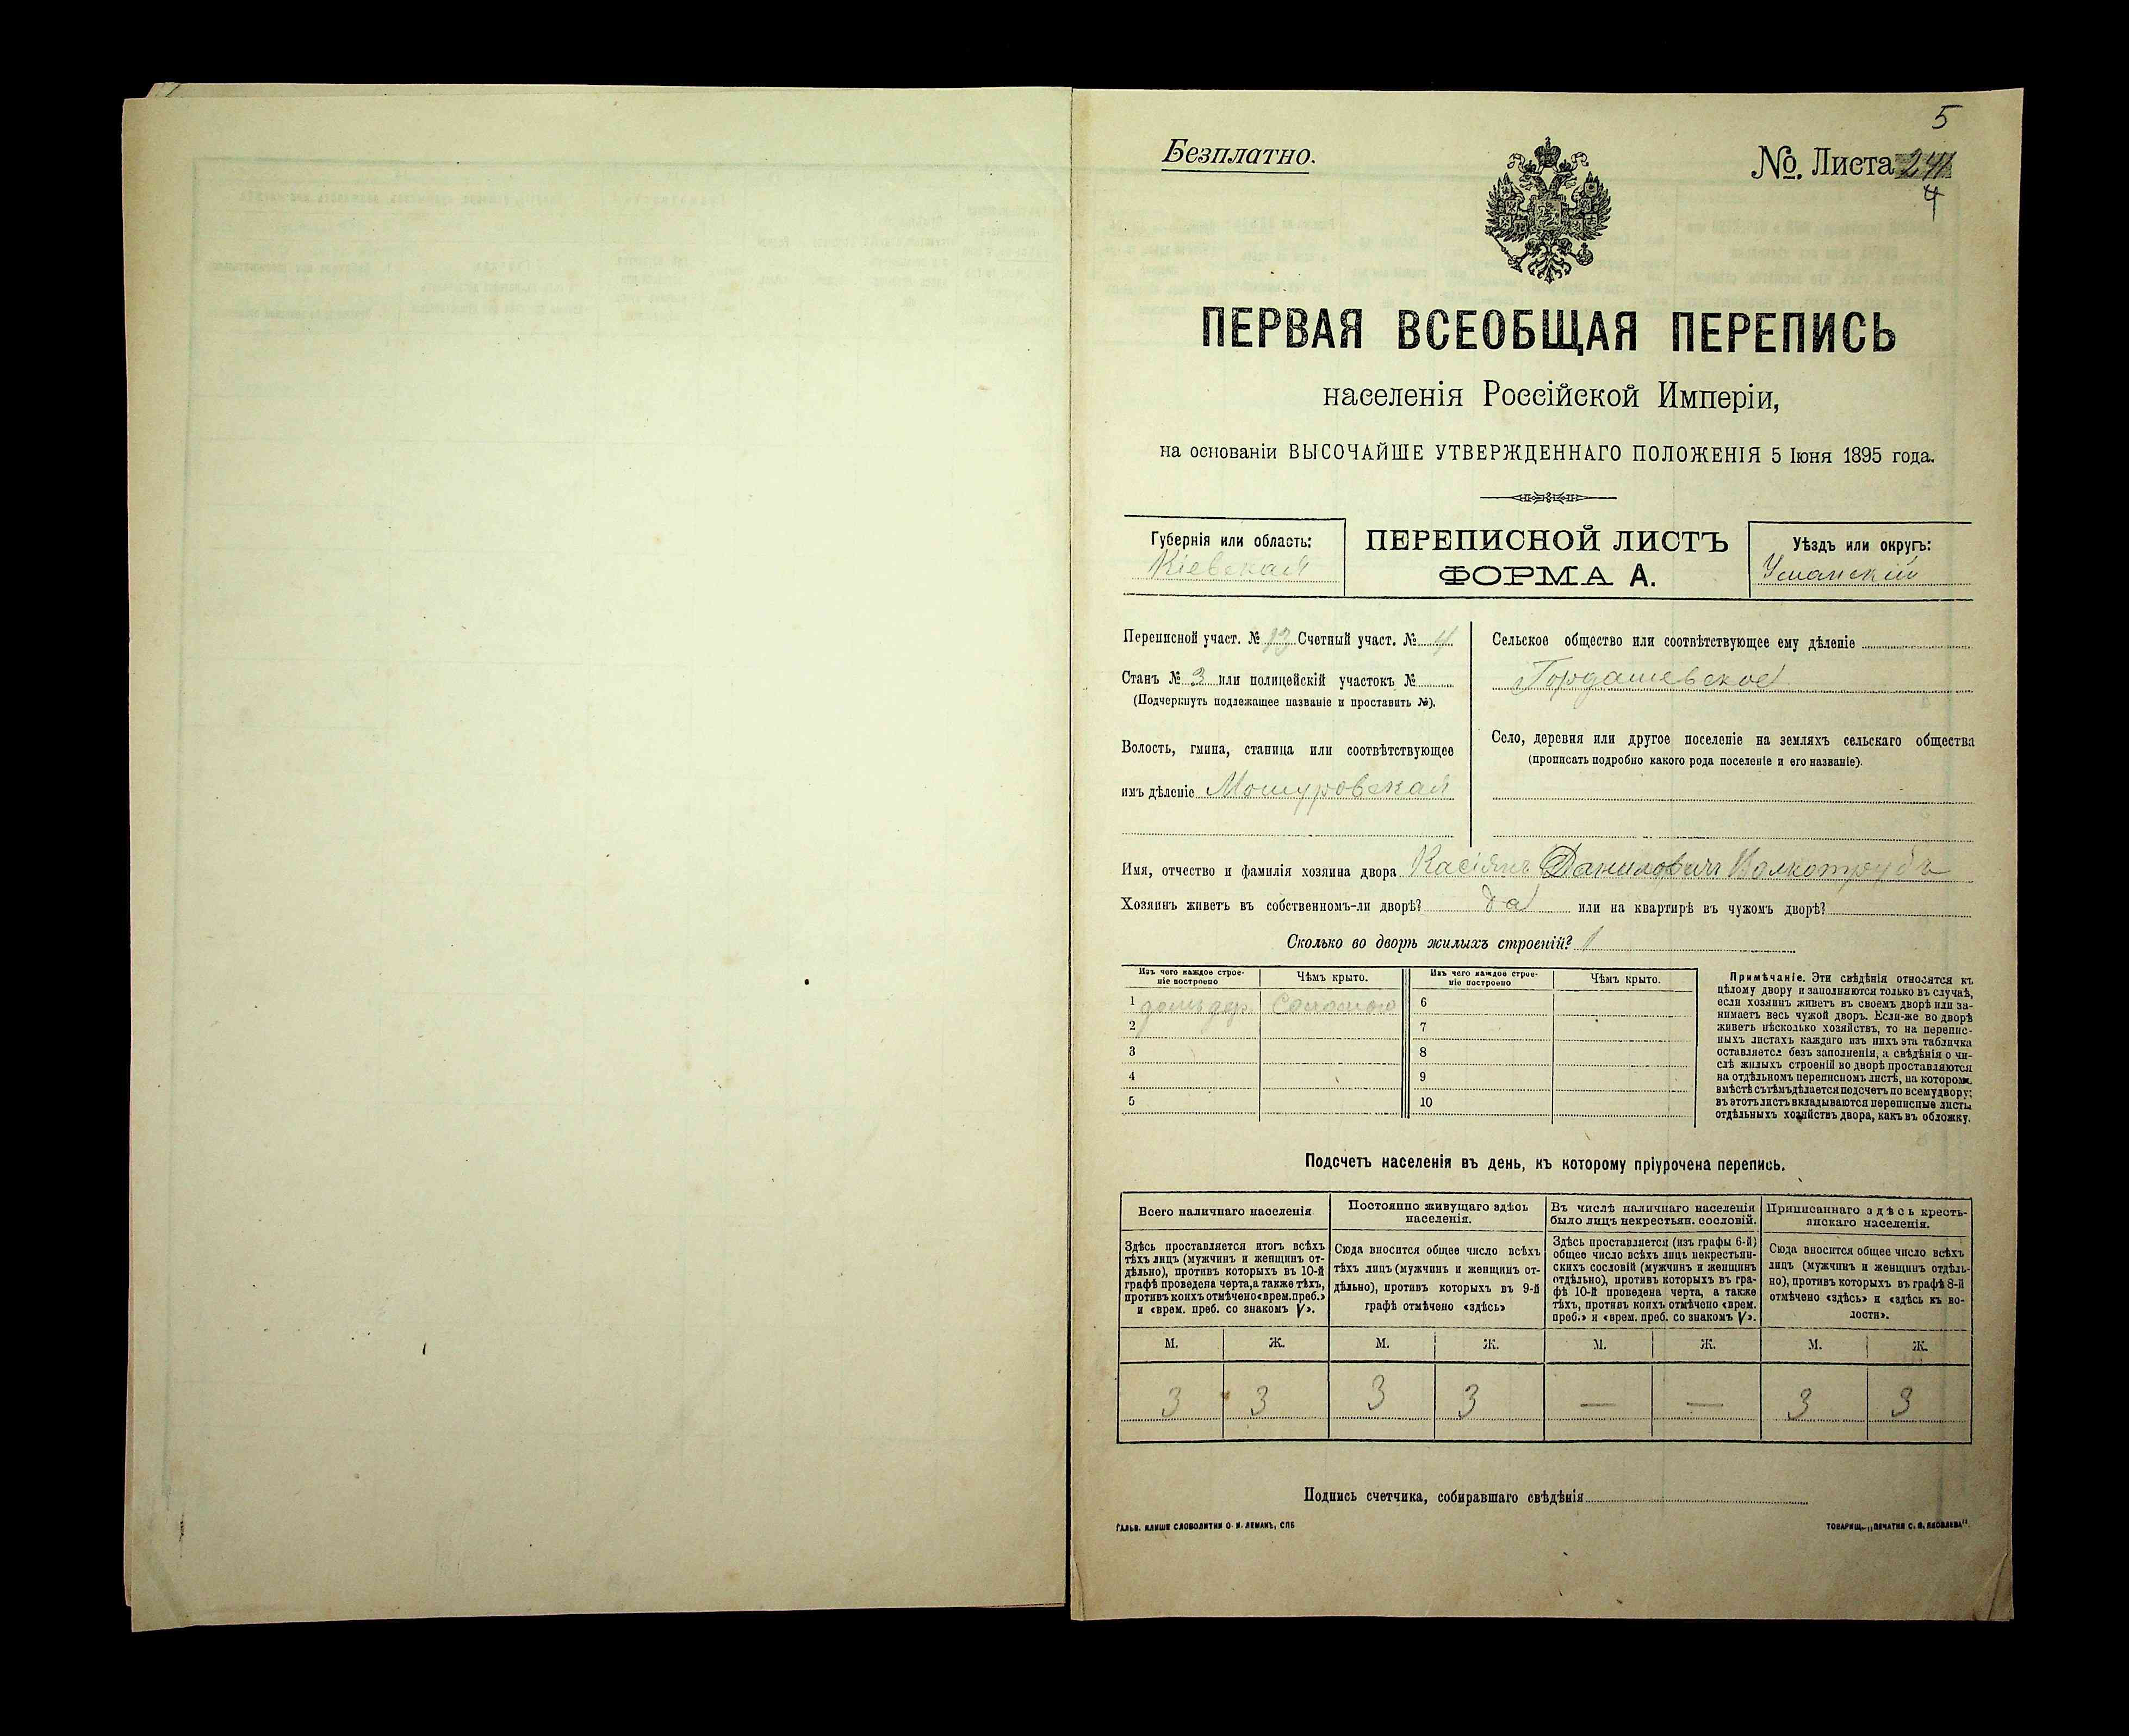 5
Безплатно.
№. Листа 241
4
ПЕРВАЯ ВСЕОБЩАЯ ПЕРЕПИСЬ
населенія Россійской Имперіи,
на основаніи ВЫСОЧАЙШЕ УТВЕРЖДЕННАГО ПОЛОЖЕНІЯ 5 Іюня 1895 года.
Губернія или область:
Кіевская
ПЕРЕПИСНОЙ ЛИСТЪ
ФОРМА А.
Уѣздъ или округъ:
Уманскій
Переписной участ. № 13 Счетный участ. № 4
Станъ № 3 или полицейскій участокъ №
(Подчеркнуть подлежащее названіе и проставить №).
Волость, гмина, станица или соотвѣтствующее
имъ дѣленіе Мошуровская
Сельское общество или соотвѣтствующее ему дѣленіе
Гордашевское
Село, деревня или другое поселеніе на земляхъ сельскаго общества
(прописать подробно какого рода поселеніе и его названіе).
Имя, отчество и фамилія хозяина двора Касіянъ Даниловичъ Волкотрубъ
Хозяинъ живетъ въ собственномъ-ли дворѣ? да или на квартирѣ въ чужомъ дворѣ?
Сколько во дворѣ жилыхъ строеній? 1
Изъ чего каждое строе-
ніе построено
Чѣмъ крыто.
Изъ чего каждое строе-
ніе построено
Чѣмъ крыто.
1 домъ дер. Соломою
2
3
4
5
6
7
8
9
10
Примѣчаніе. Эти свѣдѣнія относятся къ
цѣлому двору и заполняются только въ случаѣ,
если хозяинъ живетъ въ своемъ дворѣ или за-
нимаетъ весь чужой дворъ. Если-же во дворѣ
живетъ нѣсколько хозяйствъ, то на перепис-
ныхъ листахъ каждаго изъ нихъ эта табличка
оставляется безъ заполненія, а свѣдѣнія о чи-
слѣ жилыхъ строеній во дворѣ проставляются
на отдѣльномъ переписномъ листѣ, на которомъ
вмѣстѣ съ тѣмъ дѣлается подсчетъ по всему двору;
въ этотъ листъ вкладываются переписные листы
отдѣльныхъ хозяйствъ двора, какъ въ обложку.
Подсчетъ населенія въ день, къ которому пріурочена перепись.
Всего наличнаго населенія
Здѣсь проставляется итогъ всѣхъ
тѣхъ лицъ (мужчинъ и женщинъ от-
дѣльно), противъ которыхъ въ 10-й
графѣ проведена черта, а также тѣхъ,
противъ коихъ отмѣчено «врем. преб.»
и «врем. преб. со знакомъ V».
Постоянно живущаго здѣсь
населенія.
Сюда вносится общее число всѣхъ
тѣхъ лицъ (мужчинъ и женщинъ от-
дѣльно), противъ которыхъ въ 9-й
графѣ отмѣчено «здѣсь»
Въ числѣ наличнаго населенія
было лицъ некрестьян. сословій.
Здѣсь проставляется (изъ графы 6-й)
общее число всѣхъ лицъ некрестьян-
скихъ сословій (мужчинъ и женщинъ
отдѣльно), противъ которыхъ въ гра-
фѣ 10-й проведена черта, а также
тѣхъ, противъ коихъ отмѣчено «врем.
преб.» и «врем. преб. со знакомъ V».
Приписаннаго здѣсь кресть-
янскаго населенія.
Сюда вносится общее число всѣхъ
лицъ (мужчинъ и женщинъ отдѣль-
но), противъ которыхъ въ графѣ 8-й
отмѣчено «здѣсь» и «здѣсь къ во-
лости».
М. Ж. М. Ж. М. Ж. М. Ж.
3 3 3 3 — — 3 3
Подпись счетчика, собиравшаго свѣдѣнія
ГАЛЬВ. КЛИШЕ СЛОВОЛИТНИ О. И. ЛЕМАНЪ, СПБ
ТОВАРИЩ. „ПЕЧАТНЯ С. П. ЯКОВЛЕВА".